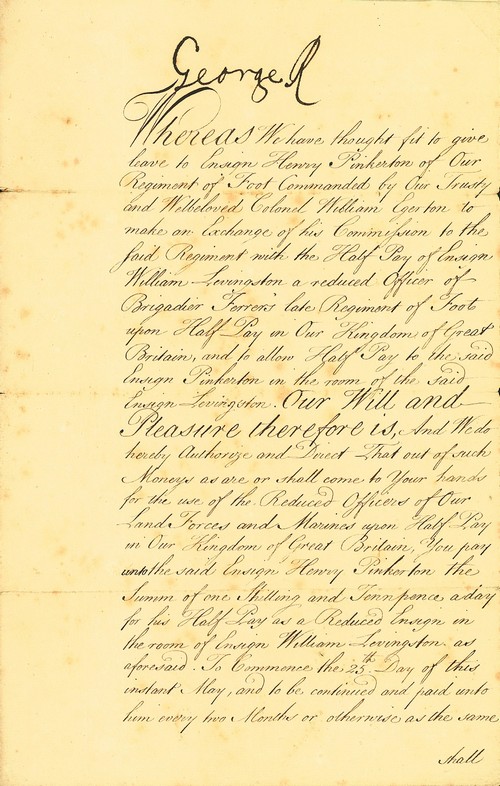 George R
Whereas We have thought fit to give
leave to Ensign Henry Pinkerton of Our
Regiment of Foot Commanded by Our Trusty
and Welbeloved Colonel William Egerton to
make an Exchange of his Commission to the
said Regiment with the Half Pay of Ensign
William Levingston a reduced Officer of
Brigadier Ferrers late Regiment of Foot
upon Half Pay in Our Kingdom of Great
Britain, and to allow Half Pay to the said
Ensign Pinkerton in the room of the said
Ensign Levingston. Our Will and
Pleasure therefore is, And We do
hereby Authorize and Direct That out of such
Moneys as are or shall come to Your hands
for the use of the Reduced Officers of Our
Land Forces and Marines upon Half Pay
in Our Kingdom of Great Britain, You pay
unto the said Ensign Henry Pinkerton the
Summ of one Shilling and Tenn pence a day
for his Half Pay as a Reduced Ensign in
the room of Ensign William Levingston as
aforesaid. To Commence the 25th Day of this
instant May, and to be continued and paid unto
him every two Months or otherwise as the same
shall